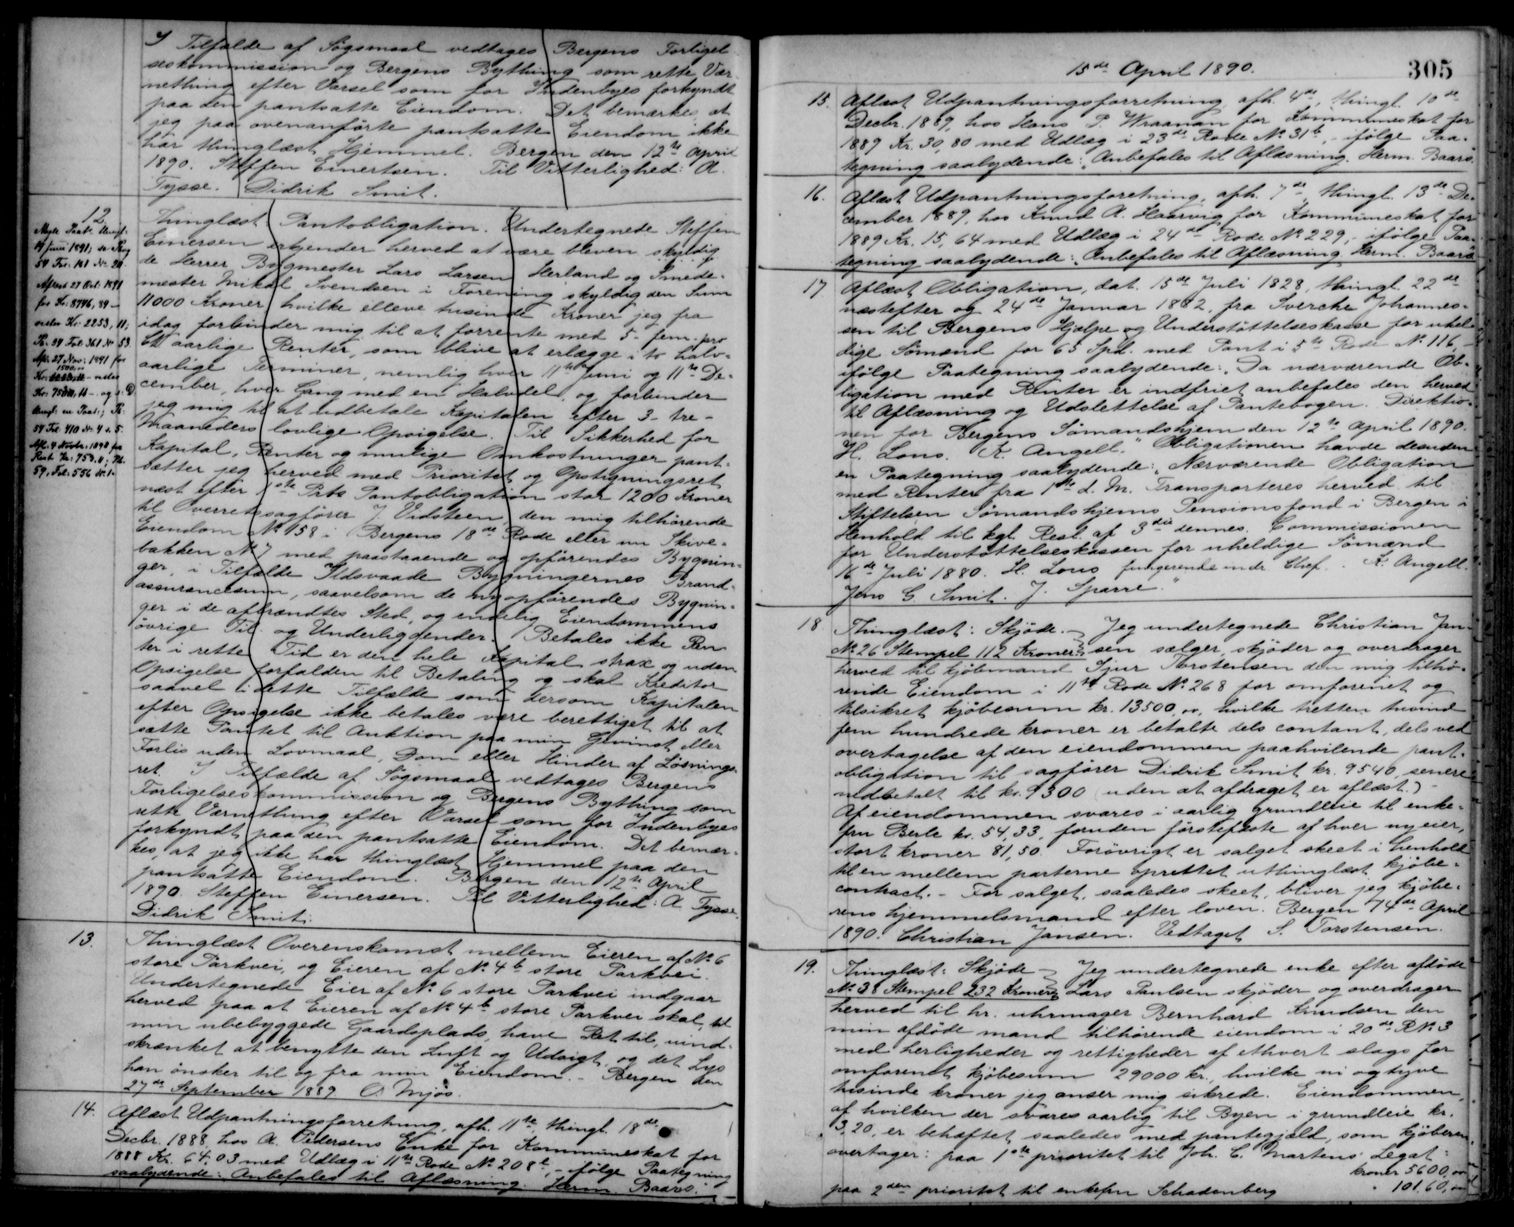 I Tilfælde af Søgsmaal vedtages Bergens Forligel
seskommission og Bergens Bything som rette Vær
nething efter Varsel som for Indenbyes forkyndt
paa den pantsatte Eiendom. Det bemærkes, at
jeg paa ovenanførte pantsatte Eiendom ikke
har thinglæst Hjemmel. Bergen den 12te April
1890. Steffen Einertsen. Til Vitterlighed: A.
Tysse. Didrik Smit.
12.
Thinglæst Pantobligation. Undertegnede Steffen
Einersen erkjender herved at være bleven skyldig
de Herrer Bygmester Lars Larsen Herland og Smede-
mester Mikal Svendsen i Forening skyldig den Sum
11000 Kroner hvilke elleve tusinde Kroner jeg fra
idag forbinder mig til at forrente med 5- fem pro
Ct. aarlige Renter, som blive at erlægge i to halv-
aarlige Terminer, nemlig hver 11te Juni og 11te De-
cember, hver Gang med en Halvdel, og forbinder
jeg mig til at udbetale Kapitalen efter 3- tre-
Maaneders lovlige Opsigelse. Til Sikkerhed for
Kapital, Renter og mulige Omkostninger pant-
sætter jeg herved med Prioritet og Opstigningsret
næst efter 1ste Prts Pantobligation stor 1200 Kroner
til Overretssagfører J. Vidsteen den mig tilhørende
Eiendom No 158 i Bergens 18de Rode eller nu Skive-
bakken No 7 med paastaaende og opførendes Bygnin-
ger, i Tilfælde Ildsvaade Bygningernes Brand-
assurancesum, saavelsom de nyopførendes Bygnin-
ger i de afbrændtes Sted, og endelig Eiendommens
øvrige Til og Underliggender. Betales ikke Ren
ter i rette Tid er den hele Kapital strax og uden
Opsigelse forfalden til Betaling og skal Kreditor
saavel i dette Tilfælde som dersom Kapitalen
efter Opsigelse ikke betales være berettiget til at
sætte Pantet til Auktion paa min Gevinst eller
Forlis uden Lovmaal, Dom eller Hinder af Løsnings-
ret. I Tilfælde af Søgsmaal vedtages Bergens
Forligelseskommission og Bergens Bything som
rette Værnething efter Varsel som for Indenbyes
forkyndt paa den pantsatte Eiendom. Det bemær-
kes, at jeg ikke har thinglæst Hjemmel paa den
pantsatte Eiendom. Bergen den 12te April
1890 Steffen Einersen. Til Vitterlighed: A Tysse.
Didrik Smit.
13.
Thinglæst Overenskomst mellem Eieren af No 6
store Parkvei, og Eieren af No 4b store Parkvei.
Undertegnede Eier af No 6 store Parkvei indgaar
herved paa at Eieren af No 4b store Parkvei skal, til
min ubebyggede Gaardsplads, have Ret til, uind-
skrænket at benytte den Luft og Udsigt og det Lys
han ønsker til og fra min Eiendom. - Bergen den
27de September 1889 O. Mjøs.
14. Aflæst Udpantningsforretning, afh. 11te, thingl. 18de
Decbr. 1888 hos A. Pedersens Enke for Kommuneskat for
1888 Kr. 64,03 med Udlæg i 11te Rode No 208b, - ifølge Paategning
saalydende: Anbefales til Aflæsning. Herm. Baars.
15de April 1890.
305
15. Aflæst Udpantningsforretning, afh. 4de, thingl. 10de
Decbr. 1889, hos Hans P. Wraaman for Kommuneskat for
1889 Kr. 30,80 med Udlæg i 23de Rode No 31b, ifølge Paa-
tegning saalydende: Anbefales til Aflæsning. Herm. Baars.
16. Aflæst Udpantningsforretning, afh. 7de, thingl. 13de De-
cember 1889, hos Knud A. Haarvig for Kommuneskat for
1889 Kr. 15,64 med Udlæg i 24de Rode No 229, ifølge Paa-
tegning saalydende: Anbefales til Aflæsning Herm. Baars
17 Aflæst Obligation, dat. 15de Juli 1828, thingl. 22de
næstefter og 24de Januar 1882, fra Sverche Johannes-
sen til Bergens Hjælpe og Understøttelseskasse for uhel-
dige Sømænd for 65 Spd. med Pant i 5te Rode No 116, -
ifølge Paategning saalydende: Da nærværende Ob-
ligation med Renter er indfriet anbefales den herved
til Aflæsning og Udslettelse af Pantebogen. Direktio-
nen for Bergens Sømandshjem den 12te April 1890.
H. Lous. K. Angell." Obligationen havde desuden
en Paategning saalydende: Nærværende Obligation
med Renter fra 1ste d. M. Transporteres herved til
Stiftelsen Sømandshjems Pensionsfond i Bergen i
Henhold til kgl. Resl. af 3die dennes. Commissionen
for Understøttelseskassen for uheldige Sømænd
16de Juli 1880. H. Lous fungerende indr. Chef. K. Angell.
Jens C. Smit. J. Sparre."
18 Thinglæst: Skjøde. Jeg undertegnede Christian Jan-
No 26 Stempel 112 Kroner. sen sælger, skjøder og overdrager
herved til kjøbmand Sjur Torstensen den mig tilhø-
rende Eiendom i 11te Rode No 268 for omforenet og
tilsikret kjøbesum kr. 13500,00, hvilke tretten tusind
fem hundrede kroner er betalte dels contant, dels ved
overtagelse af den eiendommen paahvilende pant-
obligation til sagfører Didrik Smit kr. 9540, senere
nedbetalt til kr. 9300 (uden at afdraget er aflæst.)
Af eiendommen svares i aarlig grundleie til enke-
fru Berle kr. 54,33, foruden førstefæste af hver ny eier,
stort kroner 81,50. Forøvrigt er salget skeet i henhold
til en mellem parterne oprettet uthinglæst kjøbe-
contract. - For salget, saaledes skeet, bliver jeg kjøbe-
rens hjemmelsmand efter loven. Bergen 14de April
1890. Christian Jansen. Vedtaget S. Torstensen.
19. Thinglæst: Skjøde Jeg undertegnede enke efter afdøde
No 38 Stempel 232 Kroner. Lars Paulsen skjøder og overdrager
herved til hr. uhrmager Bernhard Knudsen den
min afdøde mand tilhørende eiendom i 20de R No 3
med herligheder og rettigheder af ethvert slags for
omforenet kjøbesum 29000 kr., hvilke ni og tyve
tusinde kroner jeg anser mig sikrede. Eiendommen,
af hvilken der svares aarlig til Byen i grundleie kr.
3,20, er behæftet saaledes med pantegjæld, som kjøberen
overtager: paa 1ste prioritet til Joh. C. Martens Legat:
kroner 5600,00
paa 2den prioritet til enkefru Schadenberg " 10160,00